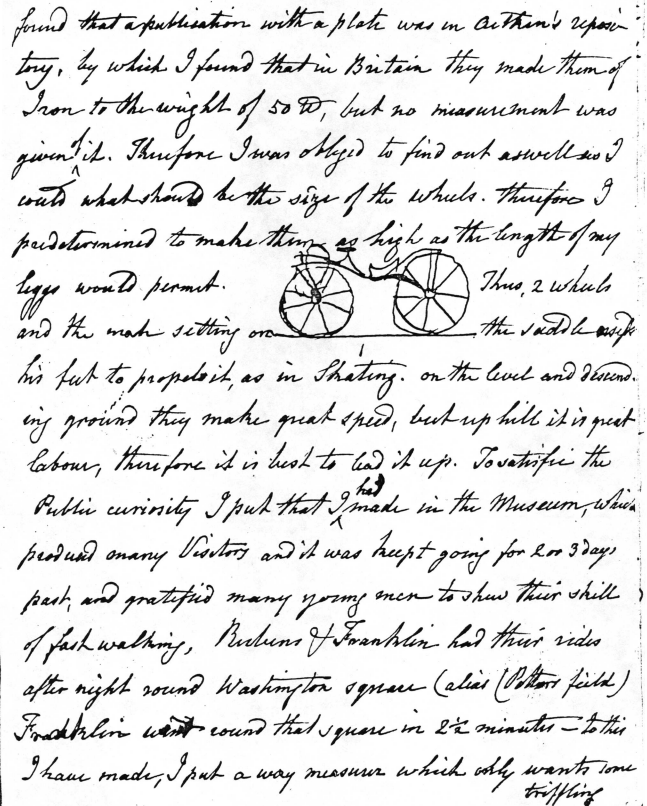 found that a publication with a plate was in Aitkin's reposi-
tory, by which I found that in Britain they made them of
Iron to the wright of 50 lb, but no measurement was
given of it. Therefore I was obliged to find out as well as I
could what should be the size of the wheels. therefore I
predetermined to make them as high as the length of my
leggs would permit. Thus, 2 wheels
and the man setting on the saddle uses
his feet to propels it, as in Skating. on the level and descend-
ing ground they make great speed, but up hill it is great
labour, therefore it is best to lead it up. To satisfie the
Public curiosity I put that I had made in the Museum, which
produced many Visitors and it was keept going for 2 or 3 days
past, and gratified many young men to shew their skill
of fast walking, Rubens & Franklin had their rides
after night round Washington square (alias (Potters field)
Franklin went round that square in 2½ minutes – to this
I have made, I put a way measurer which only wants some
triffling